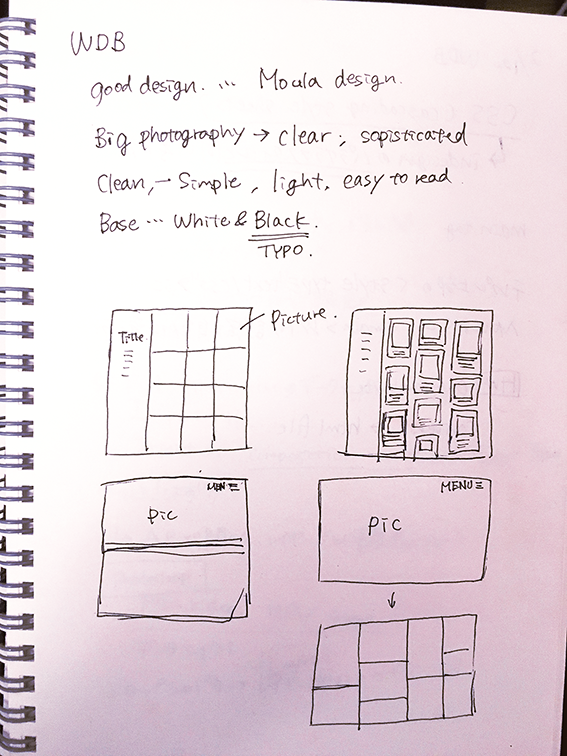 WDB
good design. ... Moula design.
Big photography → clear, sopisticated
Clean, → Simple, light, easy to read.
Base ... White & Black.
TYPO.
Title
Picture.
MENU
Pic
MENU
Pic